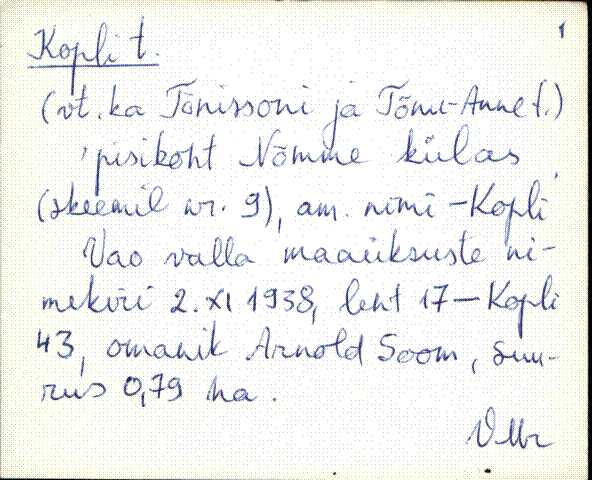 1
Kopli t.
(vt. ka Tõnissoni ja Tõnu-Anne t.)
'pisikoht Nõmme külas
(skeemil nr. 9), am. nimi - Kopli
Vao valla maaüksuste ni-
mekiri 2. XI 1938, leht 17 - Kopli
43, omanik Arnold Soom, suu-
rus 0,79 ha.
VMr